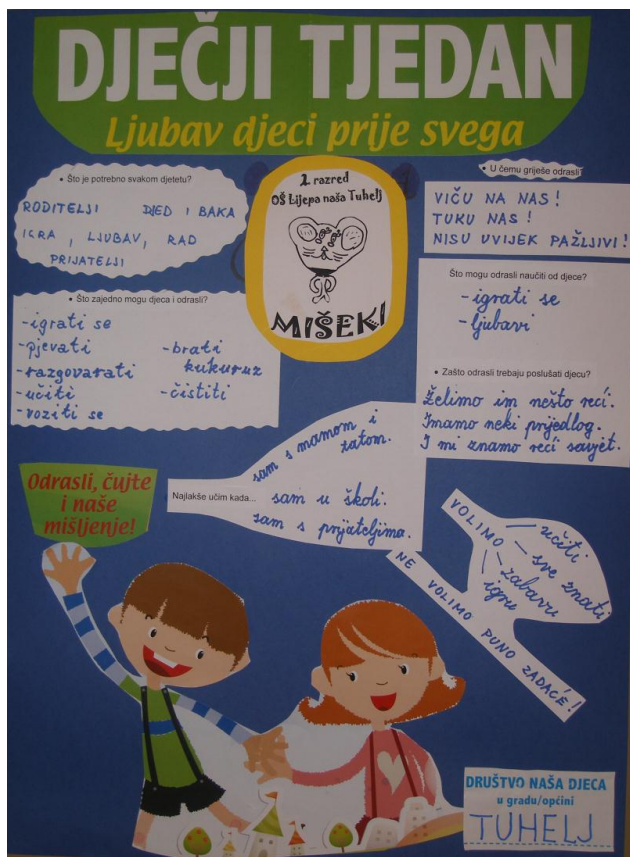 DJEČJI TJEDAN
Ljubav djeci prije svega
• Što je potrebno svakom djetetu?
RODITELJI DJED I BAKA
IGRA, LJUBAV, RAD
PRIJATELJI
2. razred
OŠ Lijepa naša Tuhelj
MIŠEKI
• U čemu griješe odrasli?
VIČU NA NAS!
TUKU NAS!
NISU UVIJEK PAŽLJIVI!
• Što zajedno mogu djeca i odrasli?
-igrati se
-pjevati
-razgovarati
-učiti
-voziti se
-brati
kukuruz
-čistiti
Što mogu odrasli naučiti od djece?
-igrati se
-ljubavi
• Zašto odrasli trebaju poslušati djecu?
Želimo im nešto reći.
Imamo neki prijedlog.
I mi znamo reći savjet.
Odrasli, čujte
i naše
mišljenje!
Najlakše učim kada...
sam s mamom i
tatom.
sam u školi.
sam s prijateljima.
VOLIMO
učiti
sve znati
zabavu
igru
NE VOLIMO PUNO ZADAĆE!
DRUŠTVO NAŠA DJECA
u gradu/općini
TUHELJ